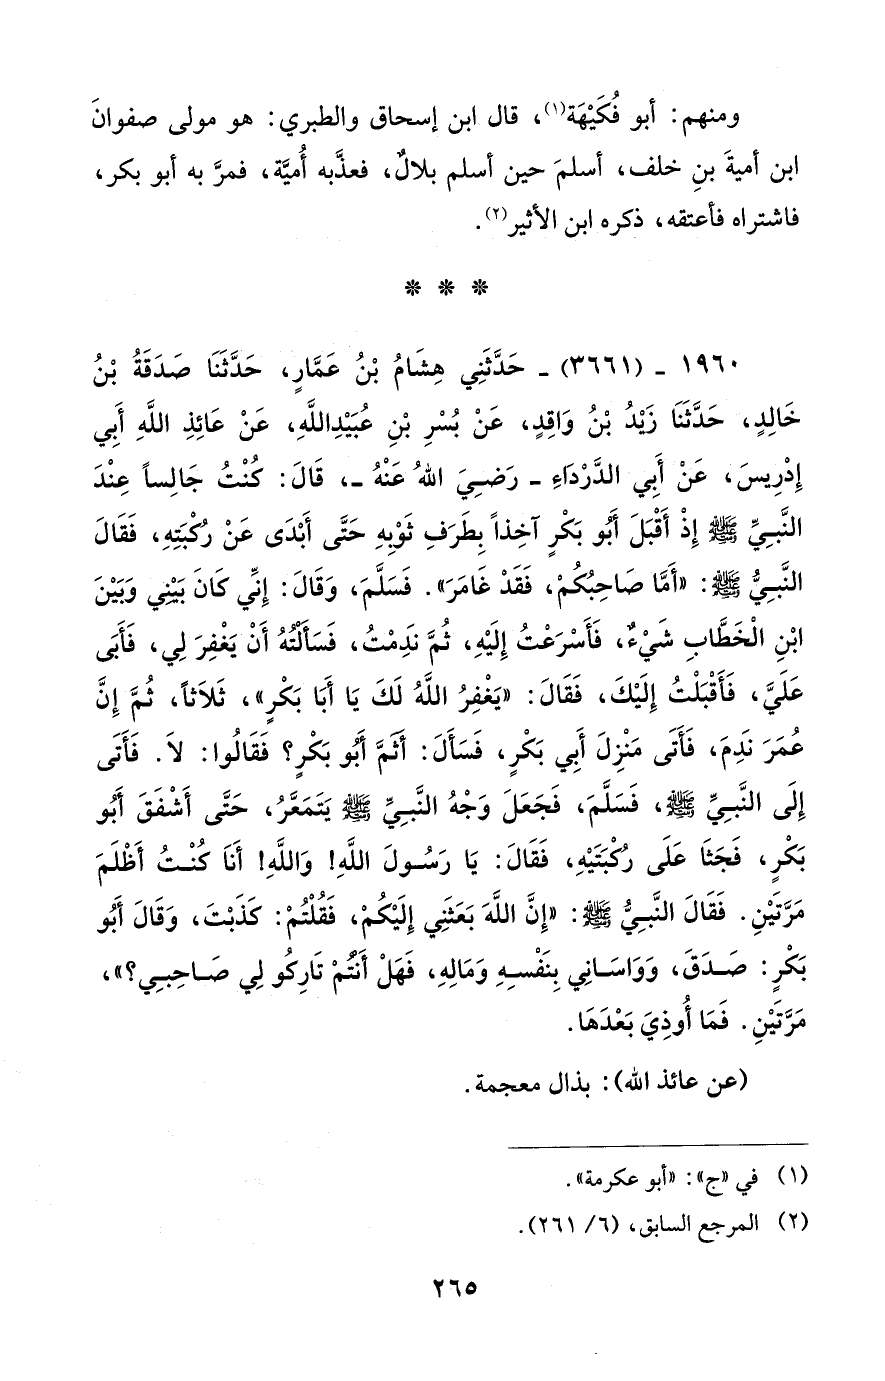 ومنهم: أبو فُكَيْهَة(١)، قال ابن إسحاق والطبري: هو مولى صفوانَ
ابن أميةَ بنِ خلف، أسلمَ حين أسلم بلالٌ، فعذَّبه أُميَّة، فمرَّ به أبو بكر،
فاشتراه فأعتقه، ذكره ابن الأثير(٢).
* * *
١٩٦٠ ـ (٣٦٦١) ـ حَدَّثَنِي هِشَامُ بْنُ عَمَّارٍ، حَدَّثَنَا صَدَقَةُ بْنُ
خَالِدٍ، حَدَّثَنَا زَيْدُ بْنُ وَاقِدٍ، عَنْ بُسْرِ بْنِ عُبَيْدِاللَّهِ، عَنْ عَائِذِ اللَّهِ أَبِي
إِدْرِيسَ، عَنْ أَبِي الدَّرْدَاءِ ـ رَضِيَ اللهُ عَنْهُ ـ، قَالَ: كُنْتُ جَالِساً عِنْدَ
النَّبِيِّ ﷺ إِذْ أَقْبَلَ أَبُو بَكْرٍ آخِذاً بِطَرَفِ ثَوْبِهِ حَتَّى أَبْدَى عَنْ رُكْبَتِهِ، فَقَالَ
النَّبِيُّ ﷺ: «أَمَّا صَاحِبُكُمْ، فَقَدْ غَامَرَ». فَسَلَّمَ، وَقَالَ: إِنِّي كَانَ بَيْنِي وَبَيْنَ
ابْنِ الْخَطَّابِ شَيْءٌ، فَأَسْرَعْتُ إِلَيْهِ، ثُمَّ نَدِمْتُ، فَسَأَلْتُهُ أَنْ يَغْفِرَ لِي، فَأَبَى
عَلَيَّ، فَأَقْبَلْتُ إِلَيْكَ، فَقَالَ: «يَغْفِرُ اللَّهُ لَكَ يَا أَبَا بَكْرٍ»، ثَلَاثاً، ثُمَّ إِنَّ
عُمَرَ نَدِمَ، فَأَتَى مَنْزِلَ أَبِي بَكْرٍ، فَسَأَلَ: أَثَمَّ أَبُو بَكْرٍ؟ فَقَالُوا: لَا. فَأَتَى
إِلَى النَّبِيِّ ﷺ، فَسَلَّمَ، فَجَعَلَ وَجْهُ النَّبِيِّ ﷺ يَتَمَعَّرُ، حَتَّى أَشْفَقَ أَبُو
بَكْرٍ، فَجَثَا عَلَى رُكْبَتَيْهِ، فَقَالَ: يَا رَسُولَ اللَّهِ! وَاللَّهِ! أَنَا كُنْتُ أَظْلَمَ
مَرَّتَيْنِ. فَقَالَ النَّبِيُّ ﷺ: «إِنَّ اللَّهَ بَعَثَنِي إِلَيْكُمْ، فَقُلْتُمْ: كَذَبْتَ، وَقَالَ أَبُو
بَكْرٍ: صَدَقَ، وَوَاسَانِي بِنَفْسِهِ وَمَالِهِ، فَهَلْ أَنْتُمْ تَارِكُو لِي صَاحِبِي؟»،
مَرَّتَيْنِ. فَمَا أُوذِيَ بَعْدَهَا.
(عن عائذ الله): بذال معجمة.
(١) في «ج»: «أبو عكرمة».
(٢) المرجع السابق، (٦/ ٢٦١).
٢٦٥